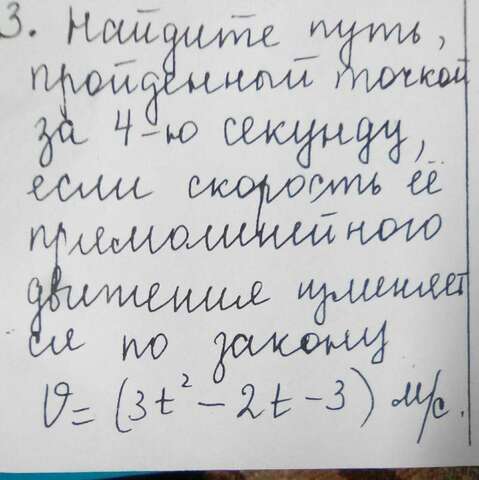 3. Найдите путь,
пройденный точкой
за 4-ю секунду,
если скорость её
прямолинейного
движения изменяет
ся по закону
V = (3t² - 2t - 3) м/с.